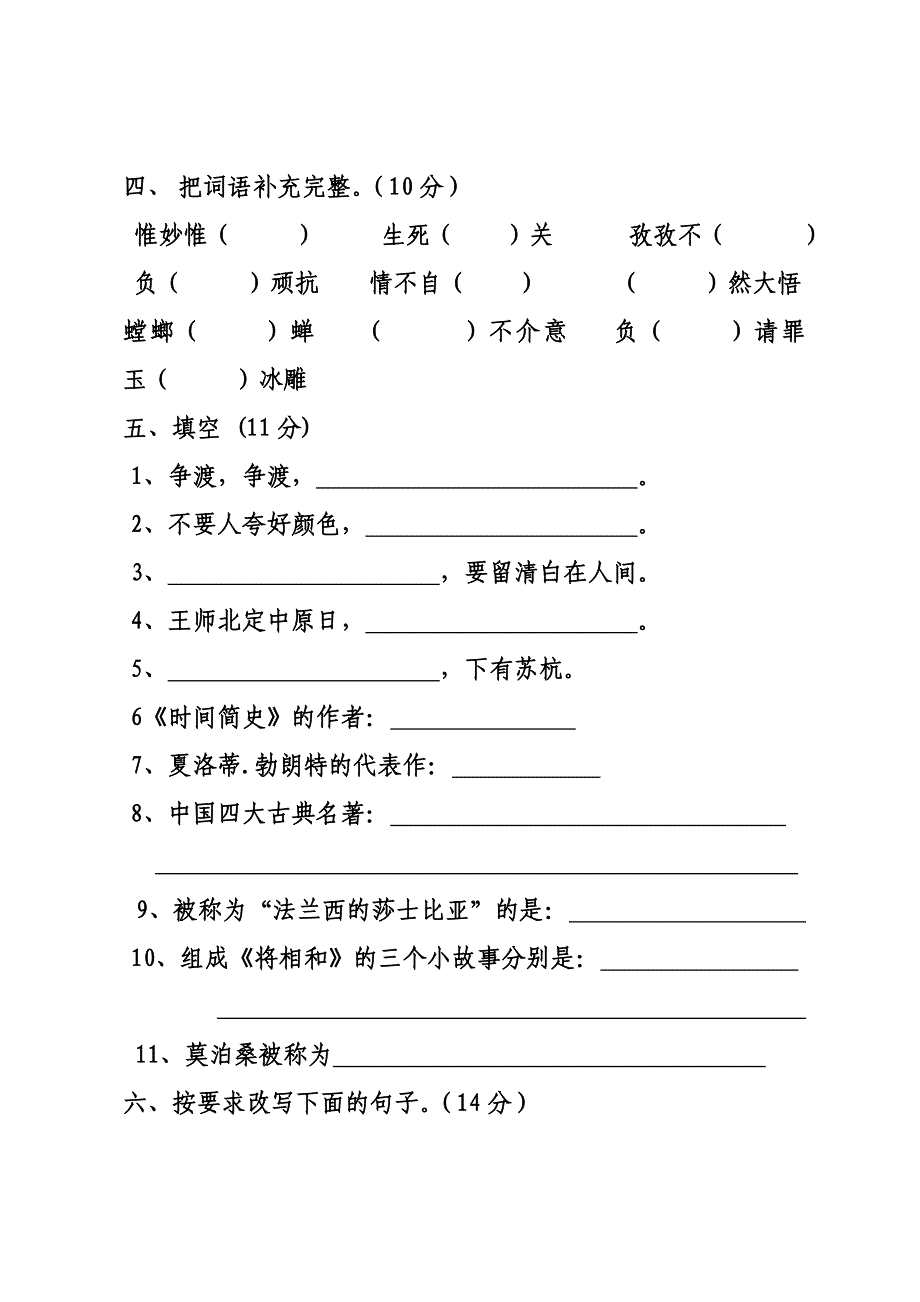 四、 把词语补充完整。（10分）
惟妙惟（ ） 生死（ ）关 孜孜不（ ）
负（ ）顽抗 情不自（ ） （ ）然大悟
螳螂（ ）蝉 （ ）不介意 负（ ）请罪
玉（ ）冰雕
五、填空 (11分)
1、争渡，争渡，__________________________。
2、不要人夸好颜色，______________________。
3、______________________，要留清白在人间。
4、王师北定中原日，______________________。
5、______________________，下有苏杭。
6《时间简史》的作者：_______________
7、夏洛蒂.勃朗特的代表作：____________
8、中国四大古典名著：________________________________
____________________________________________________
9、被称为“法兰西的莎士比亚”的是：___________________
10、组成《将相和》的三个小故事分别是：________________
________________________________________________
11、莫泊桑被称为___________________________________
六、按要求改写下面的句子。（14分）